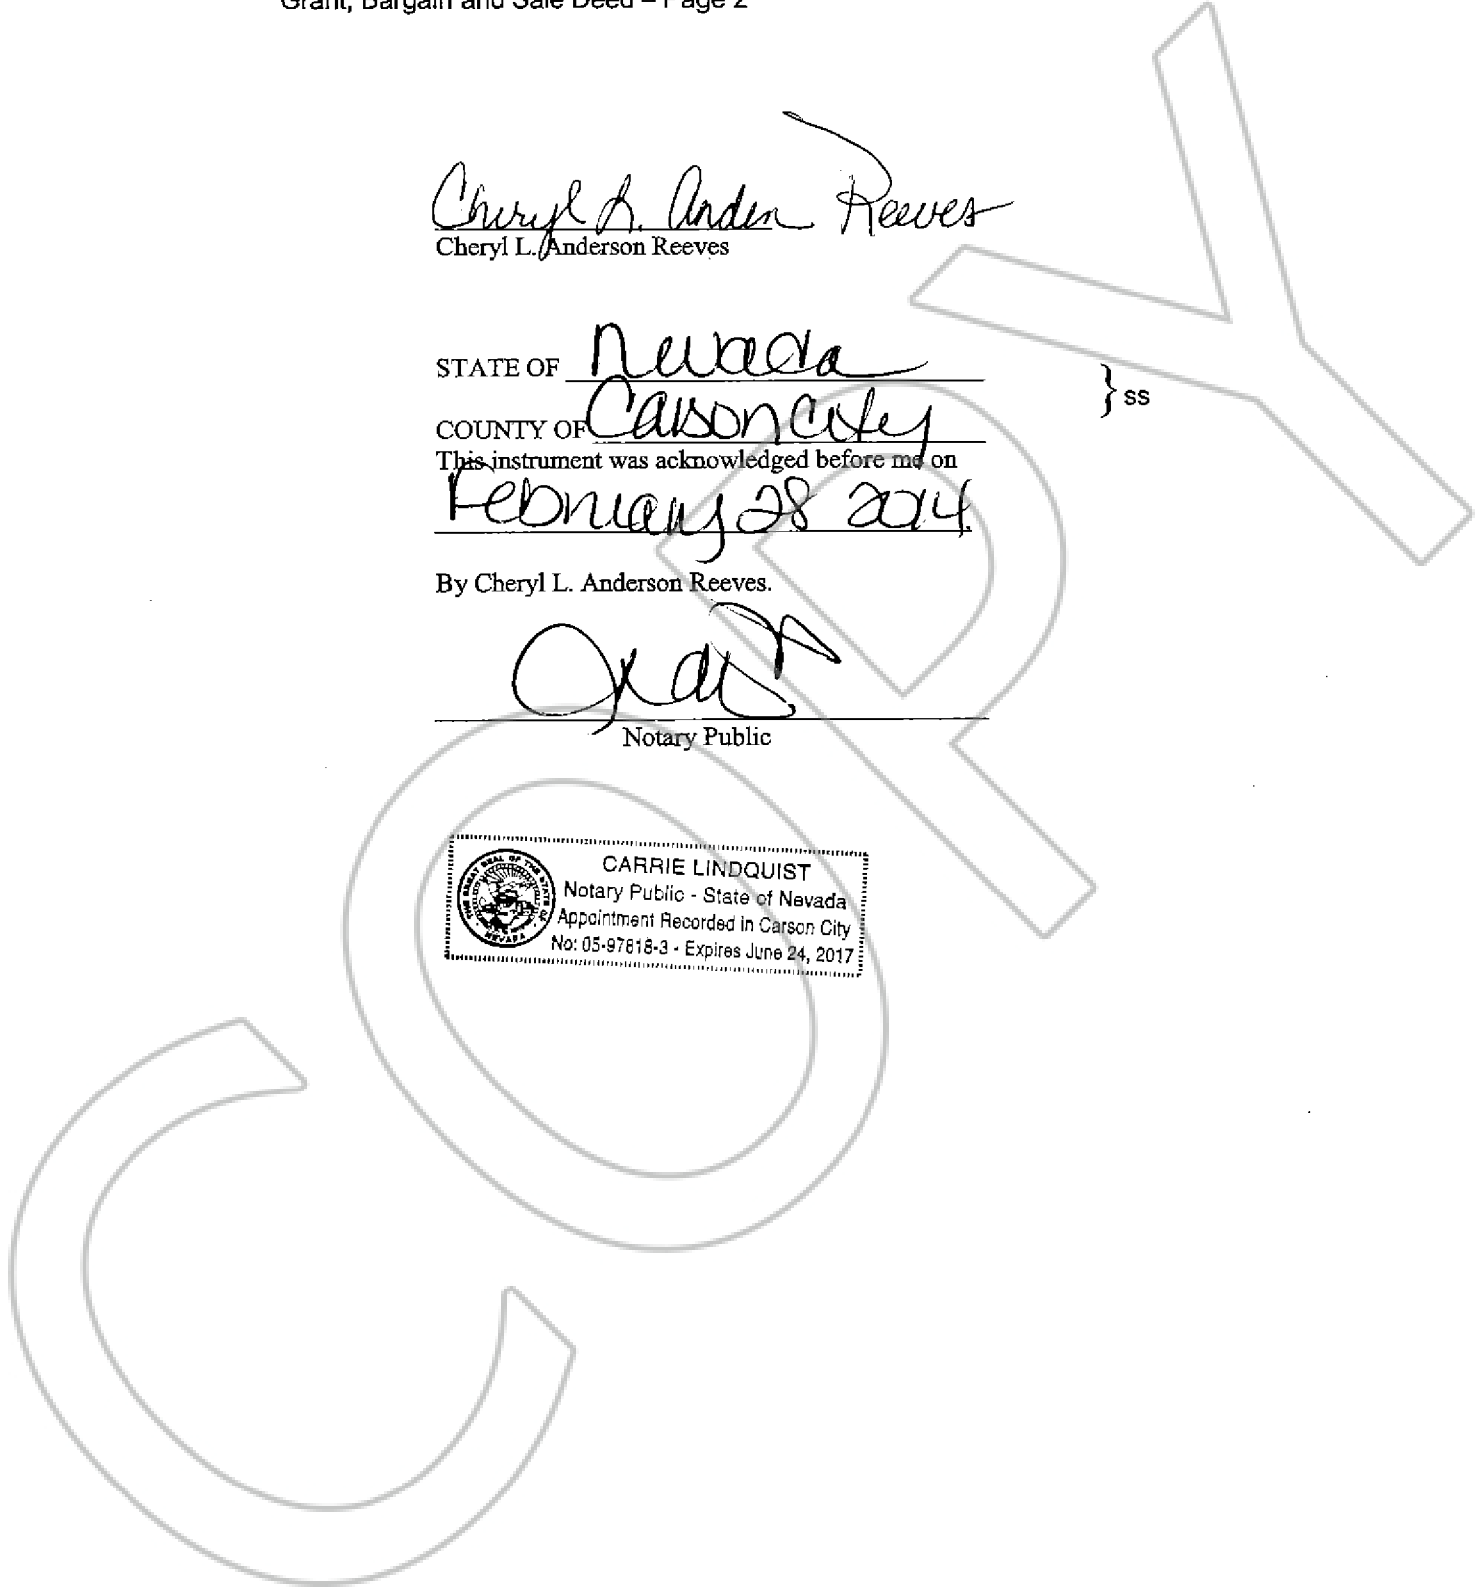 Grant, Bargain and Sale Deed – Page 2
Cheryl L. Anden Reeves
Cheryl L. Anderson Reeves
STATE OF Nevada
} ss
COUNTY OF Carson City
This instrument was acknowledged before me on
February 28 2014
By Cheryl L. Anderson Reeves.
Notary Public
CARRIE LINDQUIST
Notary Public - State of Nevada
Appointment Recorded in Carson City
No: 05-97818-3 - Expires June 24, 2017
THE GREAT SEAL OF THE STATE OF NEVADA
COPY